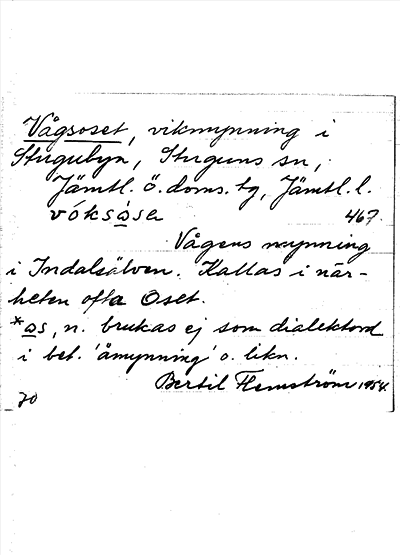 Vågsoset, vikmynning i
Stugubyn, Stuguns sn,
Jämtl. ö. doms. tg, Jämtl. l.
vóksåsa 467.
Vågens mynning
i Indalsälven. Kallas i när-
heten ofta Oset.
*os, n. brukas ej som dialektord
i bet. 'åmynning' o. likn.
Bertil Flemström 1954.
70